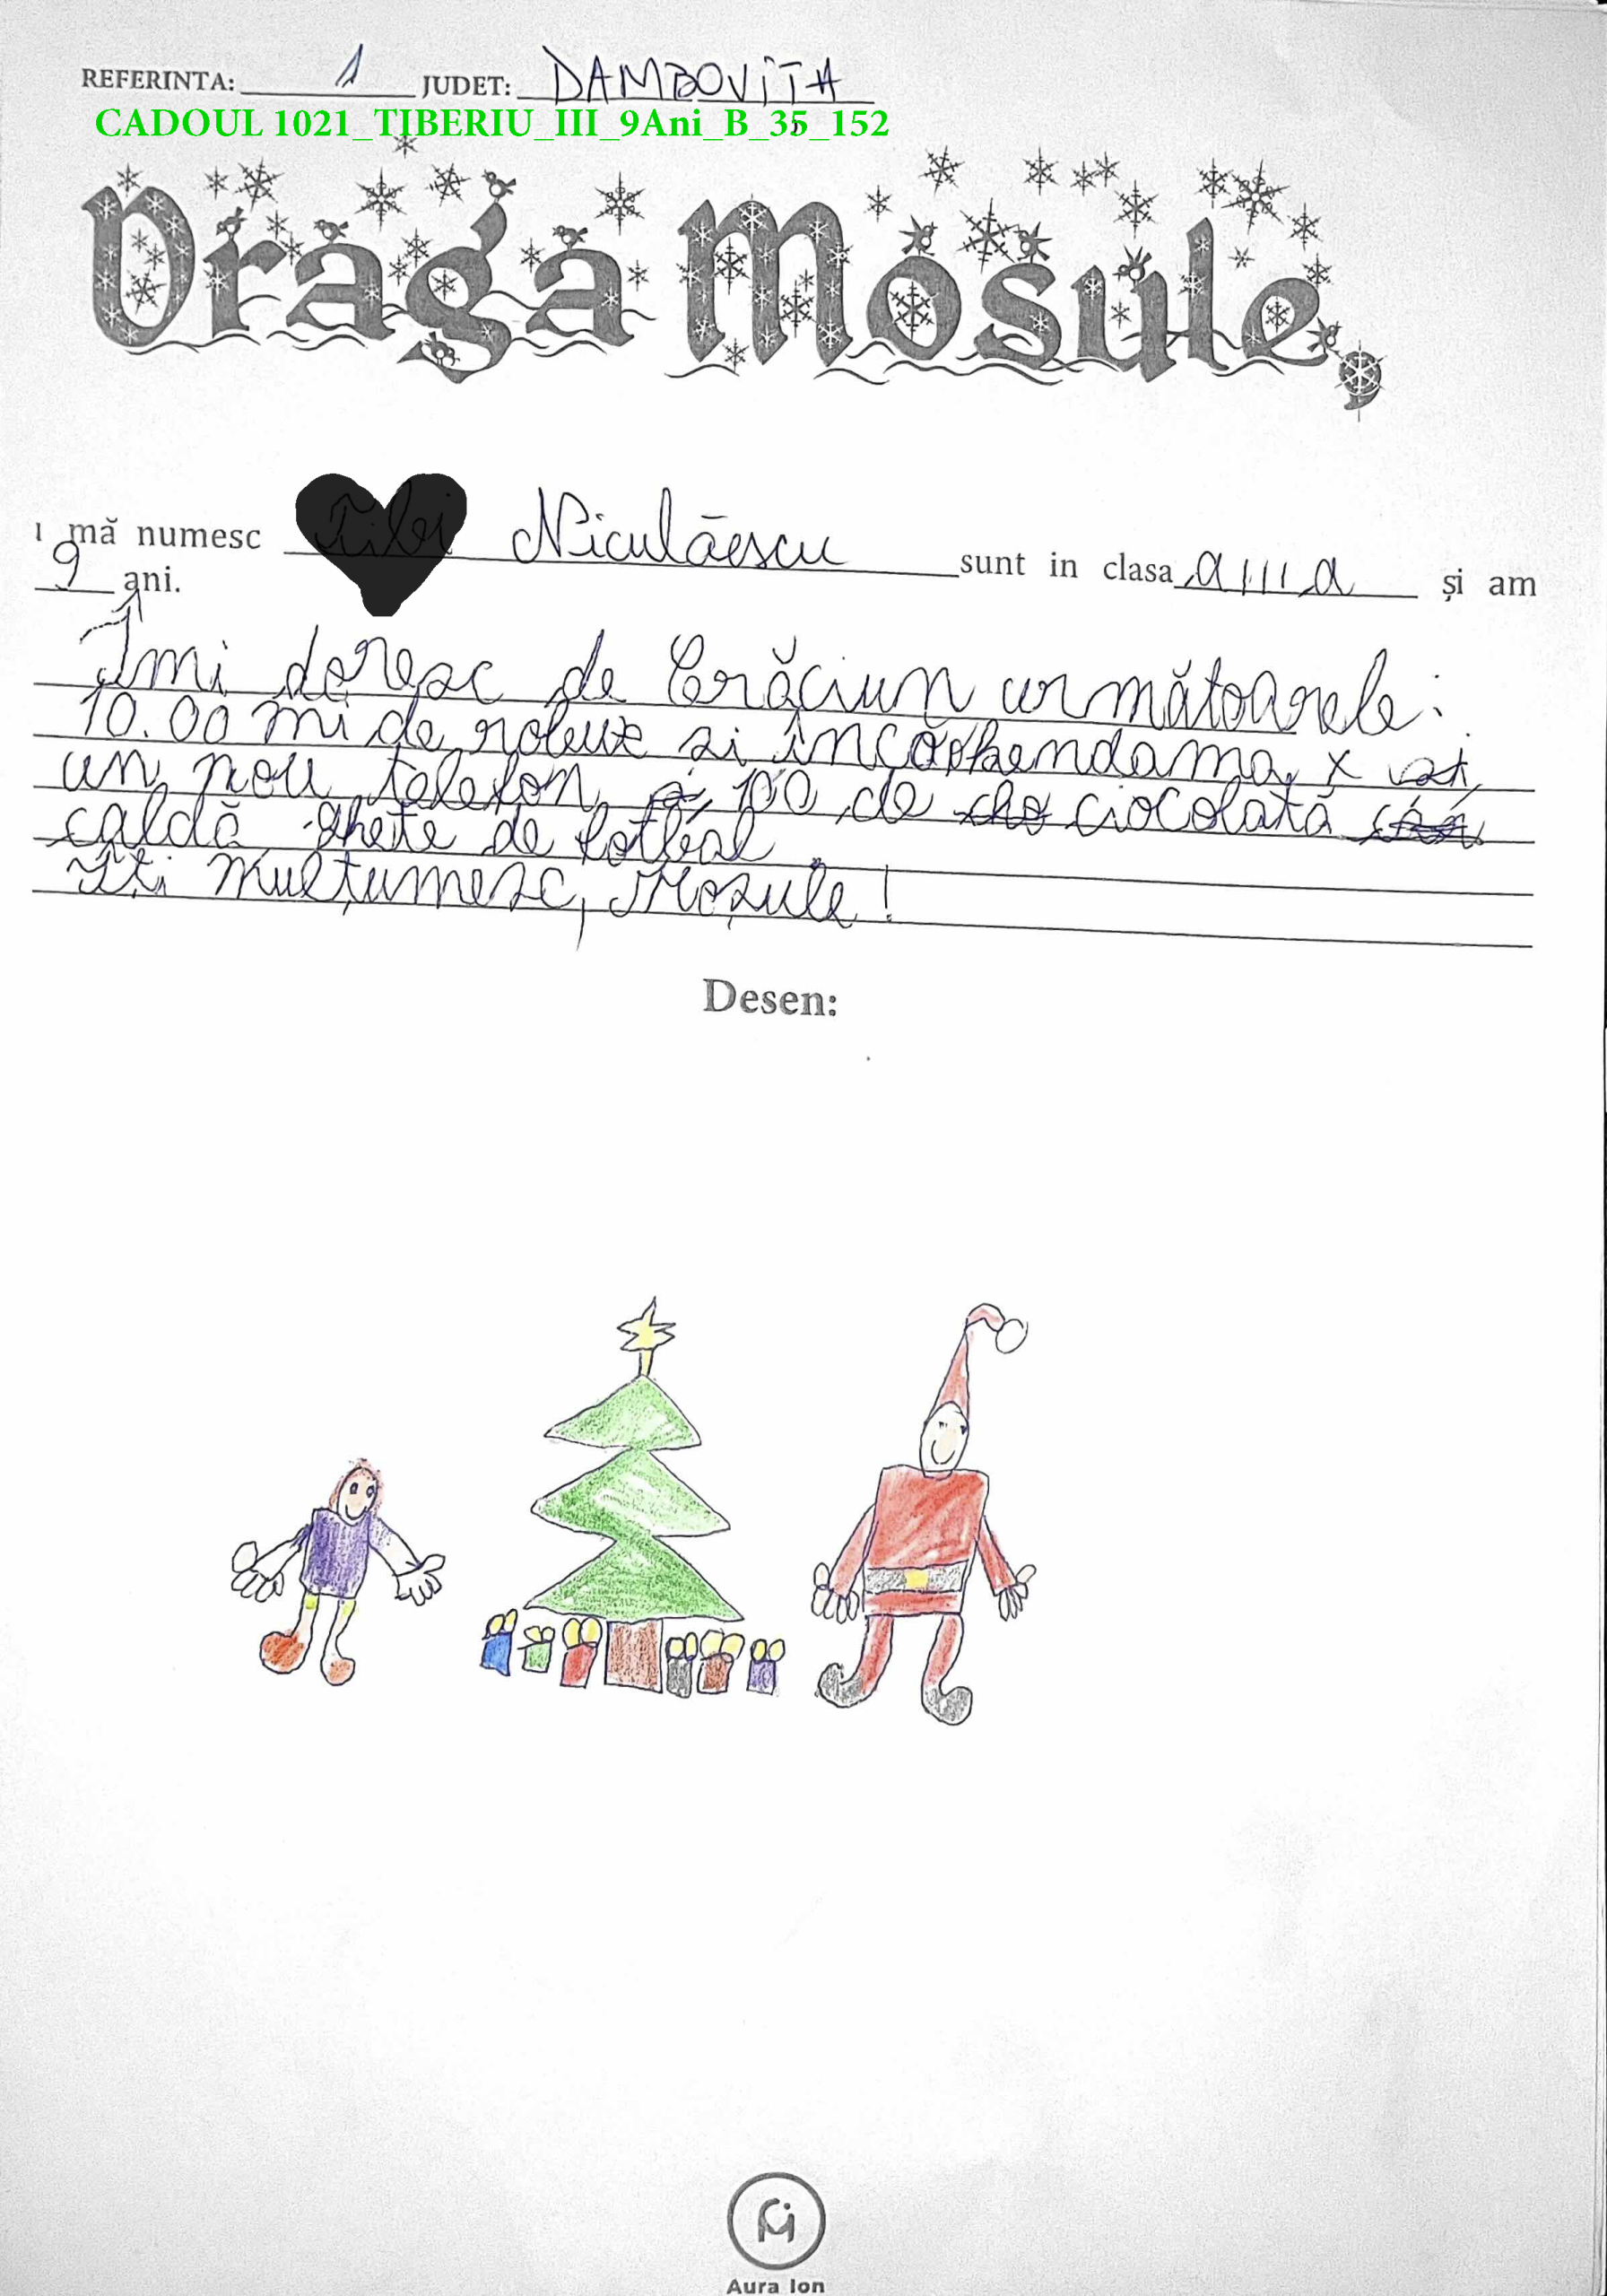 REFERINTA: 1 JUDET: DAMBOVITA
CADOUL 1021_TIBERIU_III_9Ani_B_35_152
Draga Mosule,
ı mă numesc Tibi Niculăescu sunt in clasa a III a și am
9 ani.
Îmi doresc de Crăciun următoarele:
10.00 mi de robux si
un nou telefon, 100 de ciocolată
caldă ghete de fotbal.
Îți mulțumesc, Moșule!
Desen:
Aura Ion